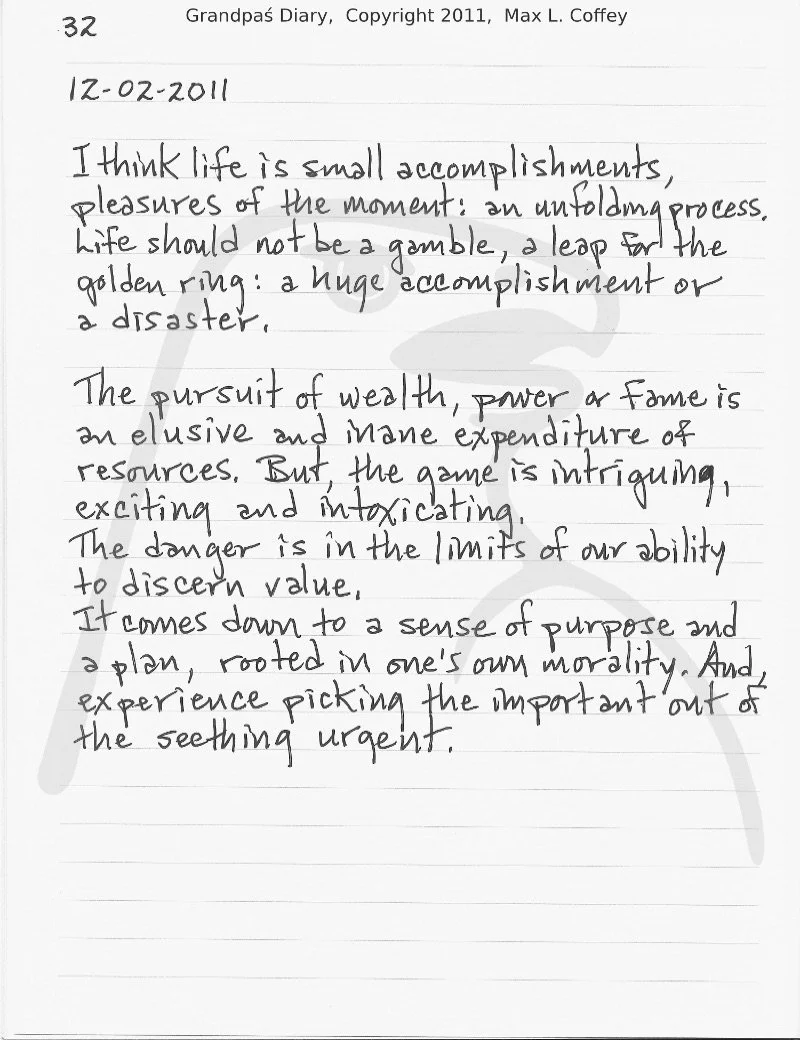 Grandpaś Diary, Copyright 2011, Max L. Coffey
32
12-02-2011
I think life is small accomplishments,
pleasures of the moment: an unfolding process.
Life should not be a gamble, a leap for the
golden ring: a huge accomplishment or
a disaster.
The pursuit of wealth, power or fame is
an elusive and inane expenditure of
resources. But, the game is intriguing,
exciting and intoxicating.
The danger is in the limits of our ability
to discern value.
It comes down to a sense of purpose and
a plan, rooted in one's own morality. And,
experience picking the important out of
the seething urgent.